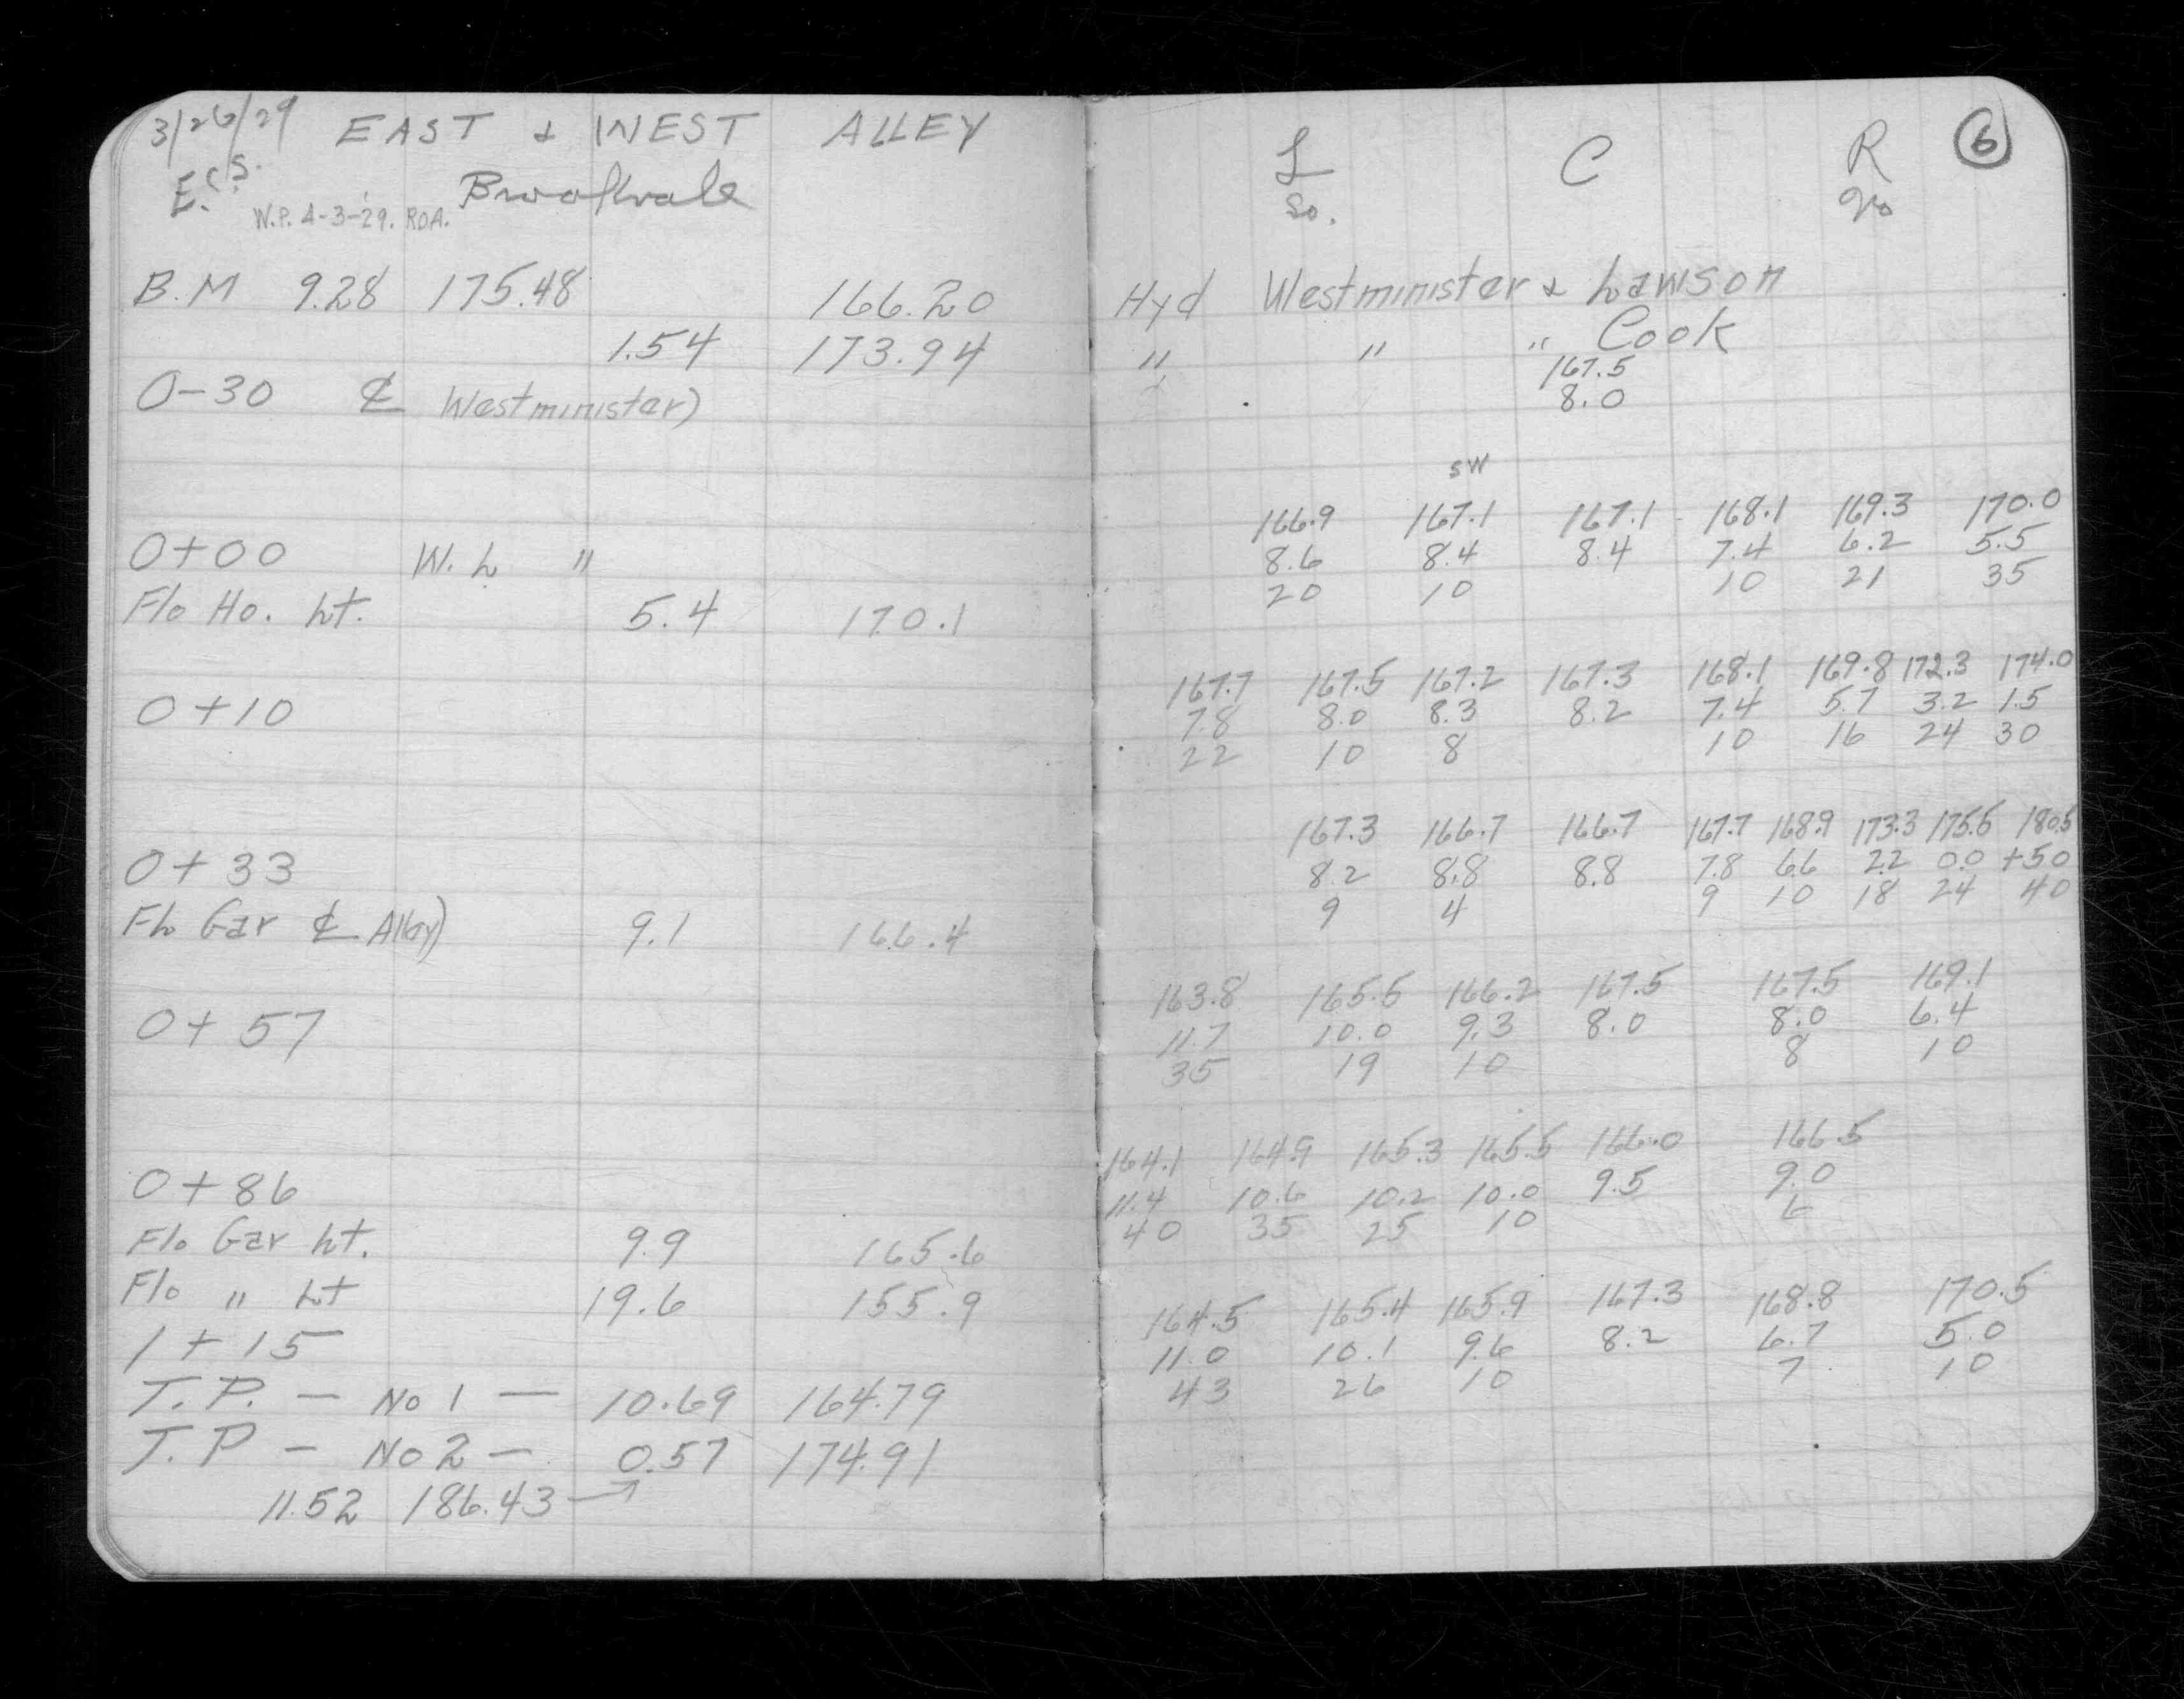 3/26/29 EAST & WEST ALLEY
E.C.S. Brookvale
W.P. 4-3-29. R.O.A.
B.M 9.28 175.48 166.20
1.54 173.94
0-30 ℄ Westminister)
0+00 W. L "
Flo Ho. Lt. 5.4 170.1
0+10
0+33
Flo Gar ℄ Alley) 9.1 166.4
0+57
0+86
Flo Gar Lt. 9.9 165.6
Flo " Lt 19.6 155.9
1+15
T.P. — No 1 — 10.69 164.79
T.P — No 2 — 0.57 174.91
11.52 186.43 →
6
L C R
So. No
Hyd Westminister & Lawson
" " " Cook
167.5
8.0
SW
166.9 167.1 167.1 168.1 169.3 170.0
8.6 8.4 8.4 7.4 6.2 5.5
20 10 10 21 35
167.7 167.5 167.2 167.3 168.1 169.8 172.3 174.0
7.8 8.0 8.3 8.2 7.4 5.7 3.2 1.5
22 10 8 10 16 24 30
167.3 166.7 166.7 167.7 168.9 173.3 175.5 180.5
8.2 8.8 8.8 7.8 6.6 2.2 0.0 +5.0
9 4 9 10 18 24 40
163.8 165.5 166.2 167.5 167.5 169.1
11.7 10.0 9.3 8.0 8.0 6.4
35 19 10 8 10
164.1 164.9 165.3 165.5 166.0 166.5
11.4 10.6 10.2 10.0 9.5 9.0
40 35 25 10 6
164.5 165.4 165.9 167.3 168.8 170.5
11.0 10.1 9.6 8.2 6.7 5.0
43 26 10 7 10